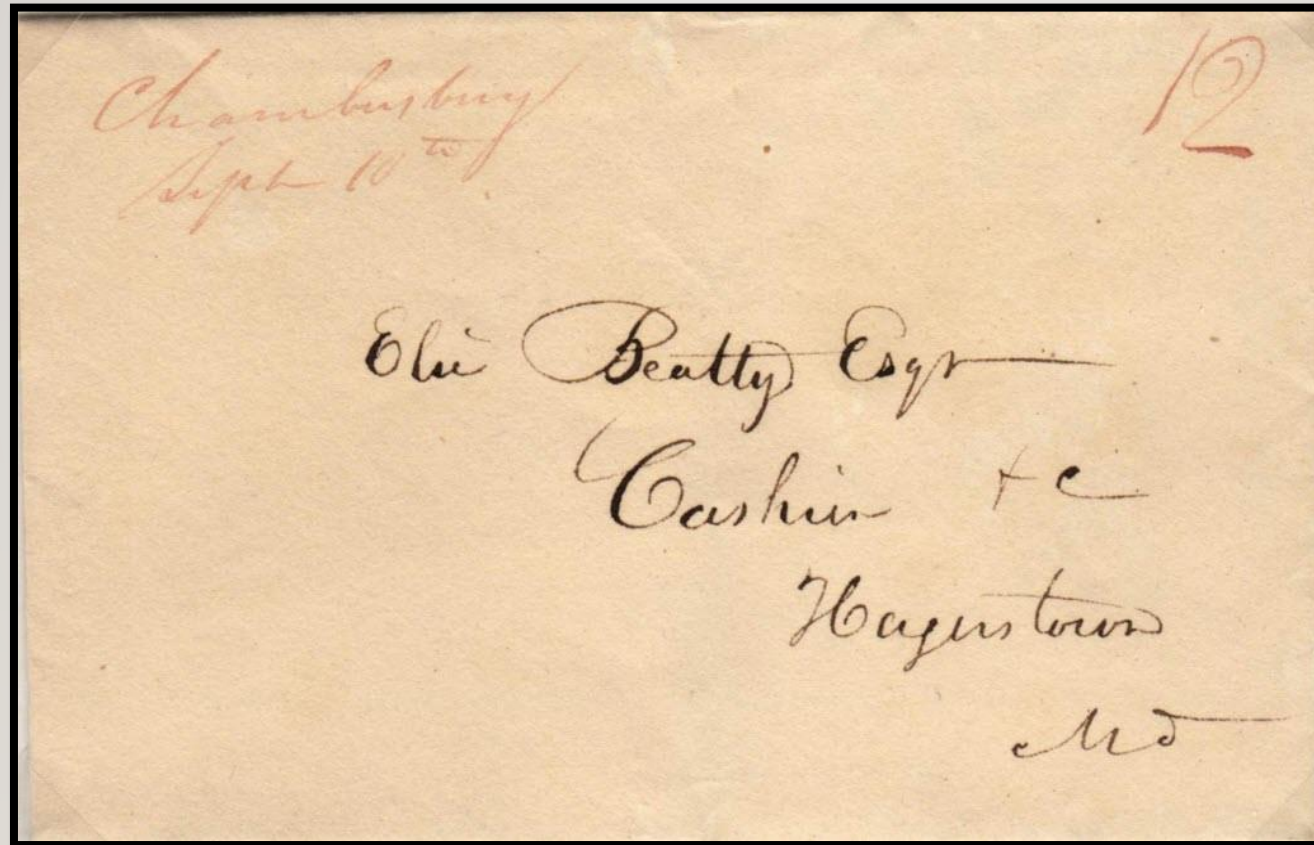 Chambersburg
Sept 10th
12
Elie Beatty Esqr
Cashier & C
Hagerstown
Md